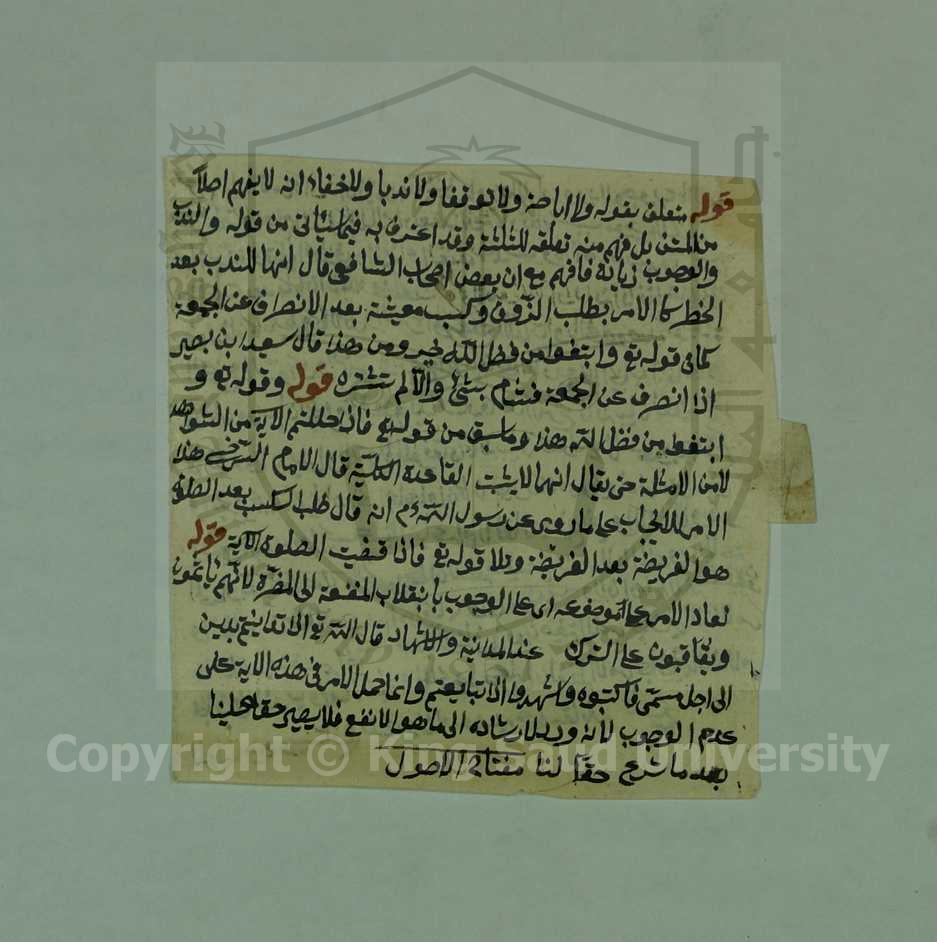 قوله متعلق بقوله ولا اباحة ولا توقفا ولا ندبا ولا خفاء انه لا يفهم اصلا
من المتن بل فهم منه تعلقه للثلثة وقد اعترف به فيما سيأتى من قوله والندب
والوجوب زيادة فافهم مع ان بعض اصحاب الشافعى قال انها للندب بعد
الخطر كما الامر بطلب الرزق وكسب معيشة بعد الانصراف عن الجمعة
كما فى قوله تع وابتغوا من فضل الله خير ومن هذا قال سعيد بن بصير
اذا انصرف عن الجمعة فتسام بشئ والالم تشتره قوله وقوله تع و
ابتغوا من فضل الله هذا وما سبق من قوله تع فاذا حللتم الاية من الشواهد
لا من الامثلة حتى يقال انهما لا يثبت القاعدة الكلية قال الامام السرخسى هذا
الامر للايجاب على ما روى عن رسول الله ءم انه قال طلب الكسب بعد الصلوة
هو الفريضة بعد الفريضة وتلا قوله تع فاذا قضيت الصلوة الاية قوله
لعاد الامر على موضوعه اى على الوجوب بانقلاب المنفعة الى المضرة لانهم يأثمون
ويعاقبون على الترك عند المداينة والاشهاد قال الله تع اذا تداينتم بدين
الى اجل مسمى فاكتبوه واشهدوا اذا تبايعتم وانما حمل الامر فى هذه الاية على
عدم الوجوب لانه ورد للارشاده الى ما هو الانفع فلا يصير حقا علينا
بعد ما شرع حقا لنا مفتاح الاصول
Copyright © King Saud University